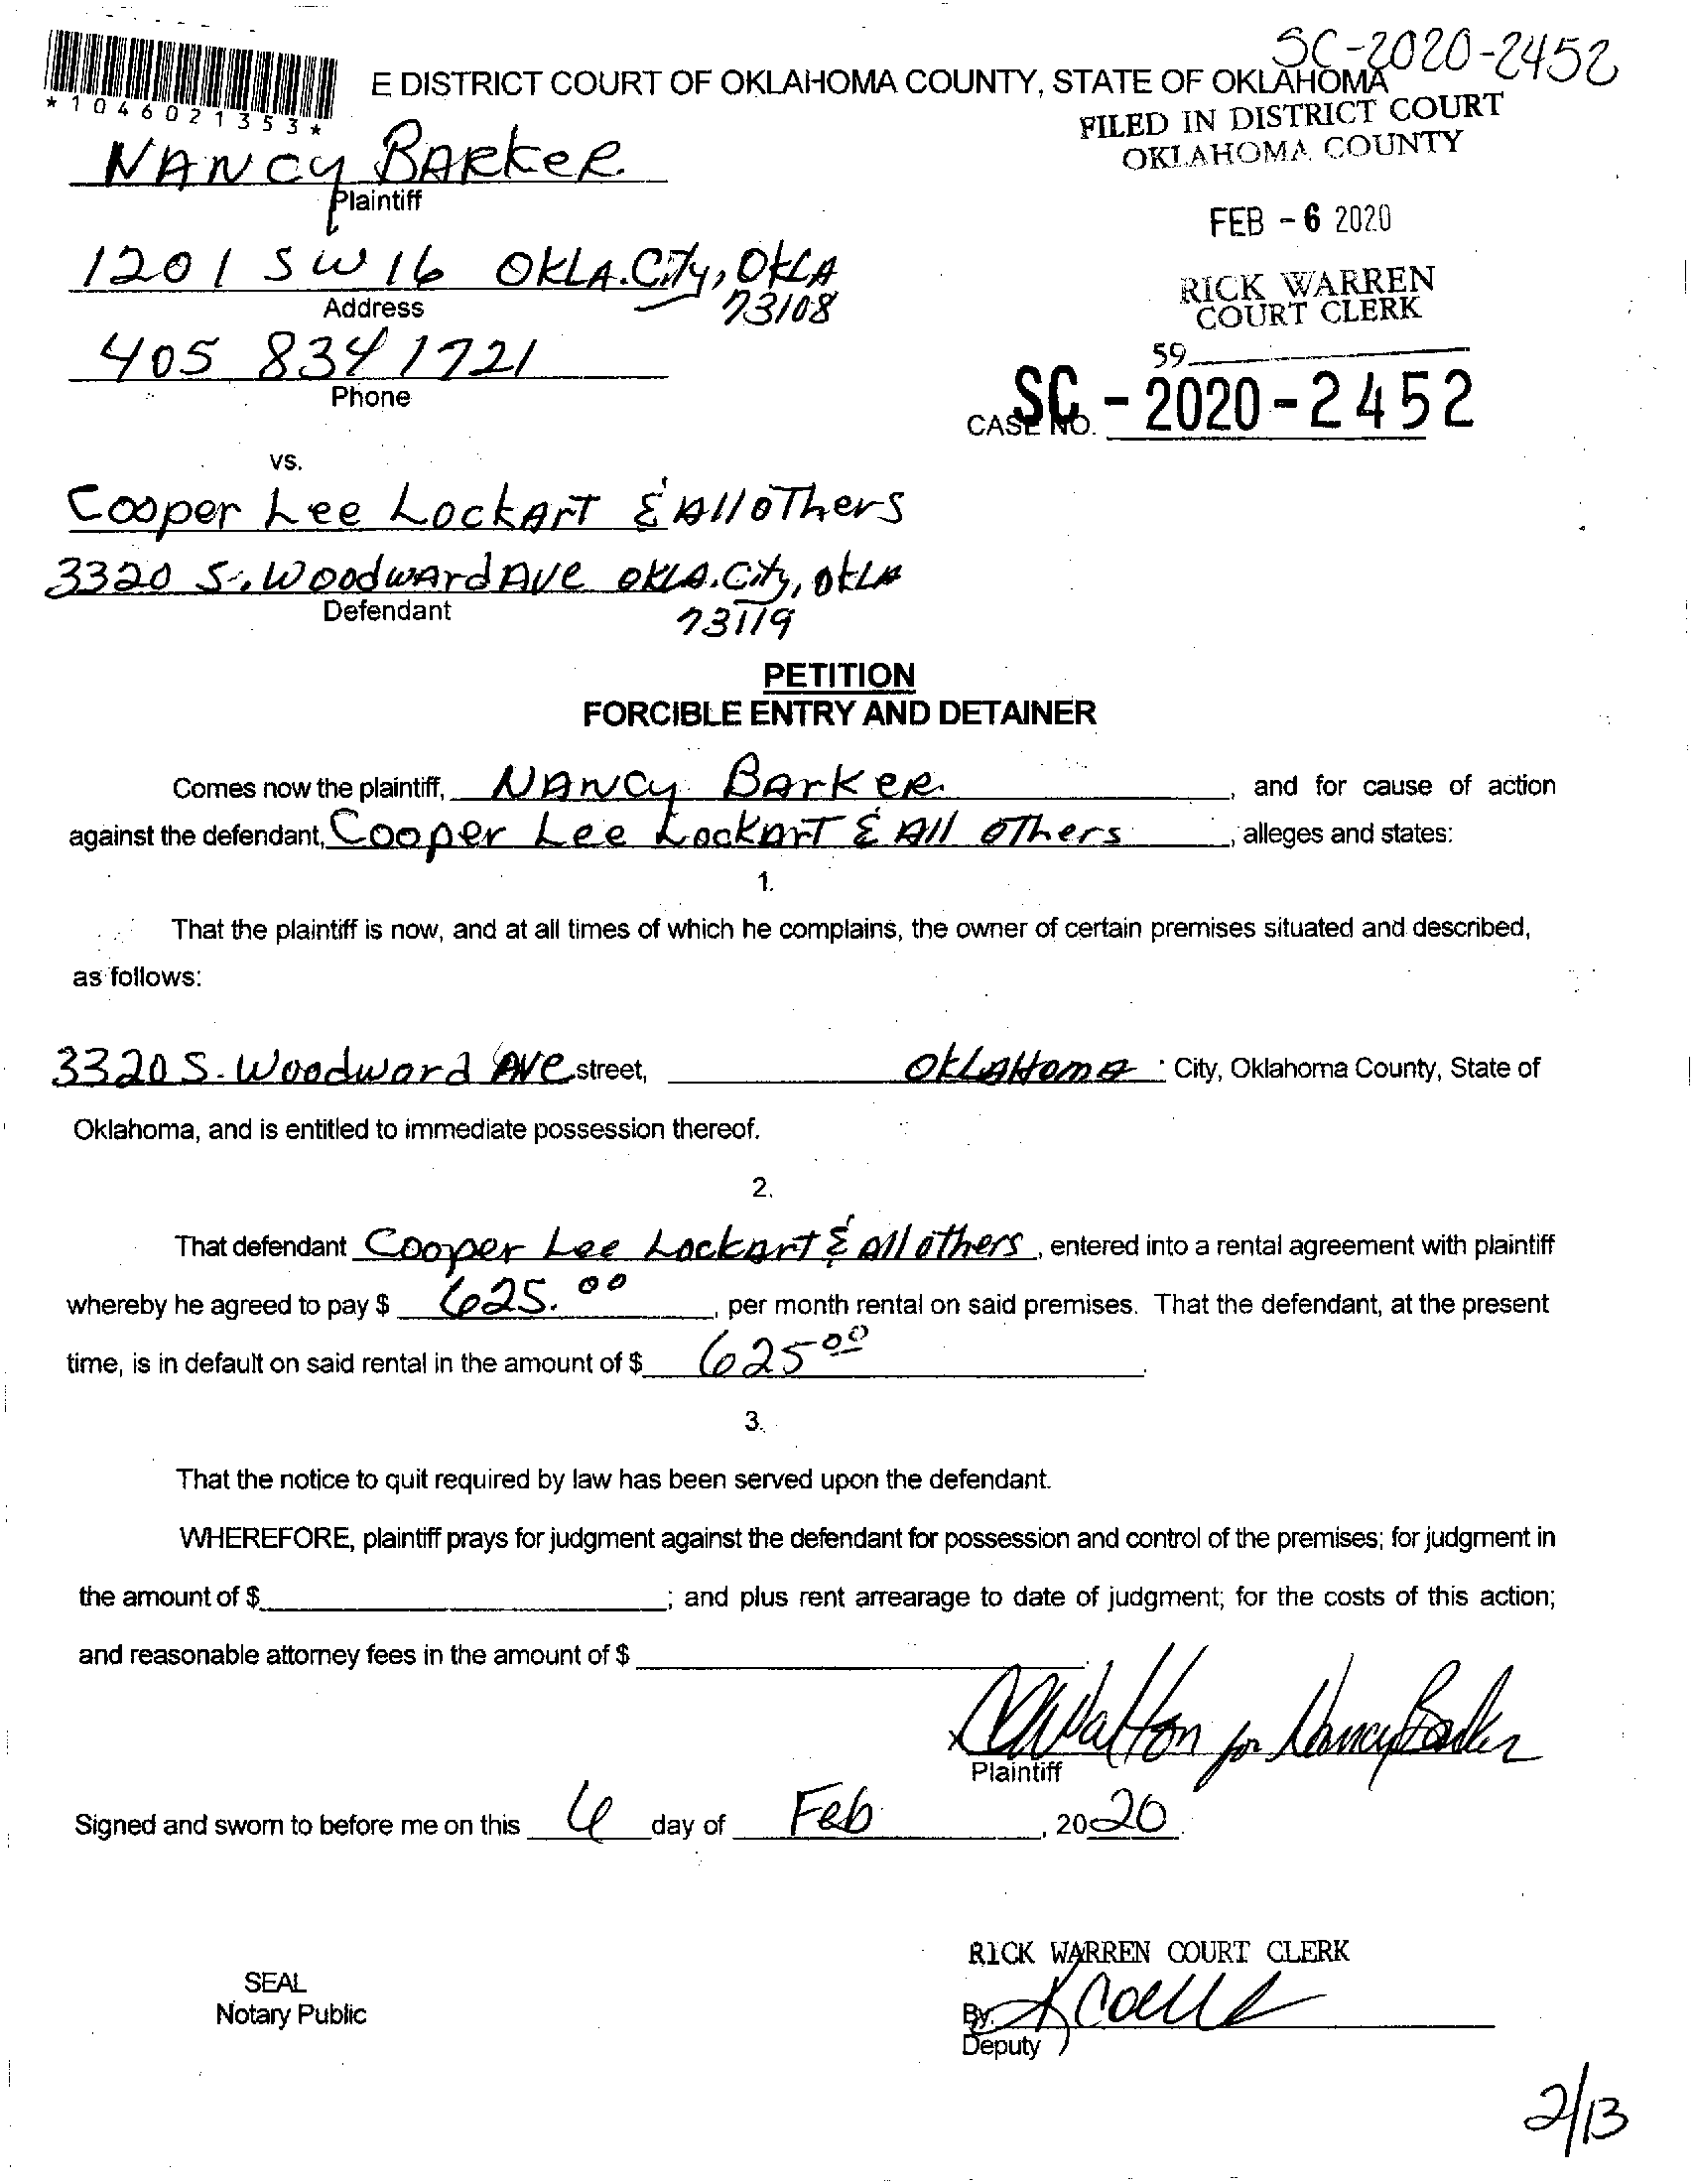 SC-2020-2452
E DISTRICT COURT OF OKLAHOMA COUNTY, STATE OF OKLAHOMA
*1046021353*
FILED IN DISTRICT COURT
OKLAHOMA COUNTY
NANCY BARKER
Plaintiff
FEB - 6 2020
1201 SW 16 OKLA. City, OKLA
73108
Address
RICK WARREN
COURT CLERK
405 834 1721
Phone
59
CASE NO. SC - 2020 - 2452
vs.
Cooper Lee LockArT & All oThers
3320 S. WoodwArd Ave OKLA. City, OKLA
73119
Defendant
PETITION
FORCIBLE ENTRY AND DETAINER
Comes now the plaintiff, NANCY BArker, and for cause of action
against the defendant, Cooper Lee LockArT & All oThers, alleges and states:
1.
That the plaintiff is now, and at all times of which he complains, the owner of certain premises situated and described,
as follows:
3320 S. Woodword Ave street, OKLAHomA City, Oklahoma County, State of
Oklahoma, and is entitled to immediate possession thereof.
2.
That defendant Cooper Lee LockArt & All others, entered into a rental agreement with plaintiff
whereby he agreed to pay $ 625.00, per month rental on said premises. That the defendant, at the present
time, is in default on said rental in the amount of $ 625 00.
3.
That the notice to quit required by law has been served upon the defendant.
WHEREFORE, plaintiff prays for judgment against the defendant for possession and control of the premises; for judgment in
the amount of $ ; and plus rent arrearage to date of judgment; for the costs of this action;
and reasonable attorney fees in the amount of $ .
x Walton for Nancy Barker
Plaintiff
Signed and sworn to before me on this 6 day of Feb, 2020.
RICK WARREN COURT CLERK
SEAL
Notary Public
By.
Deputy
2/13